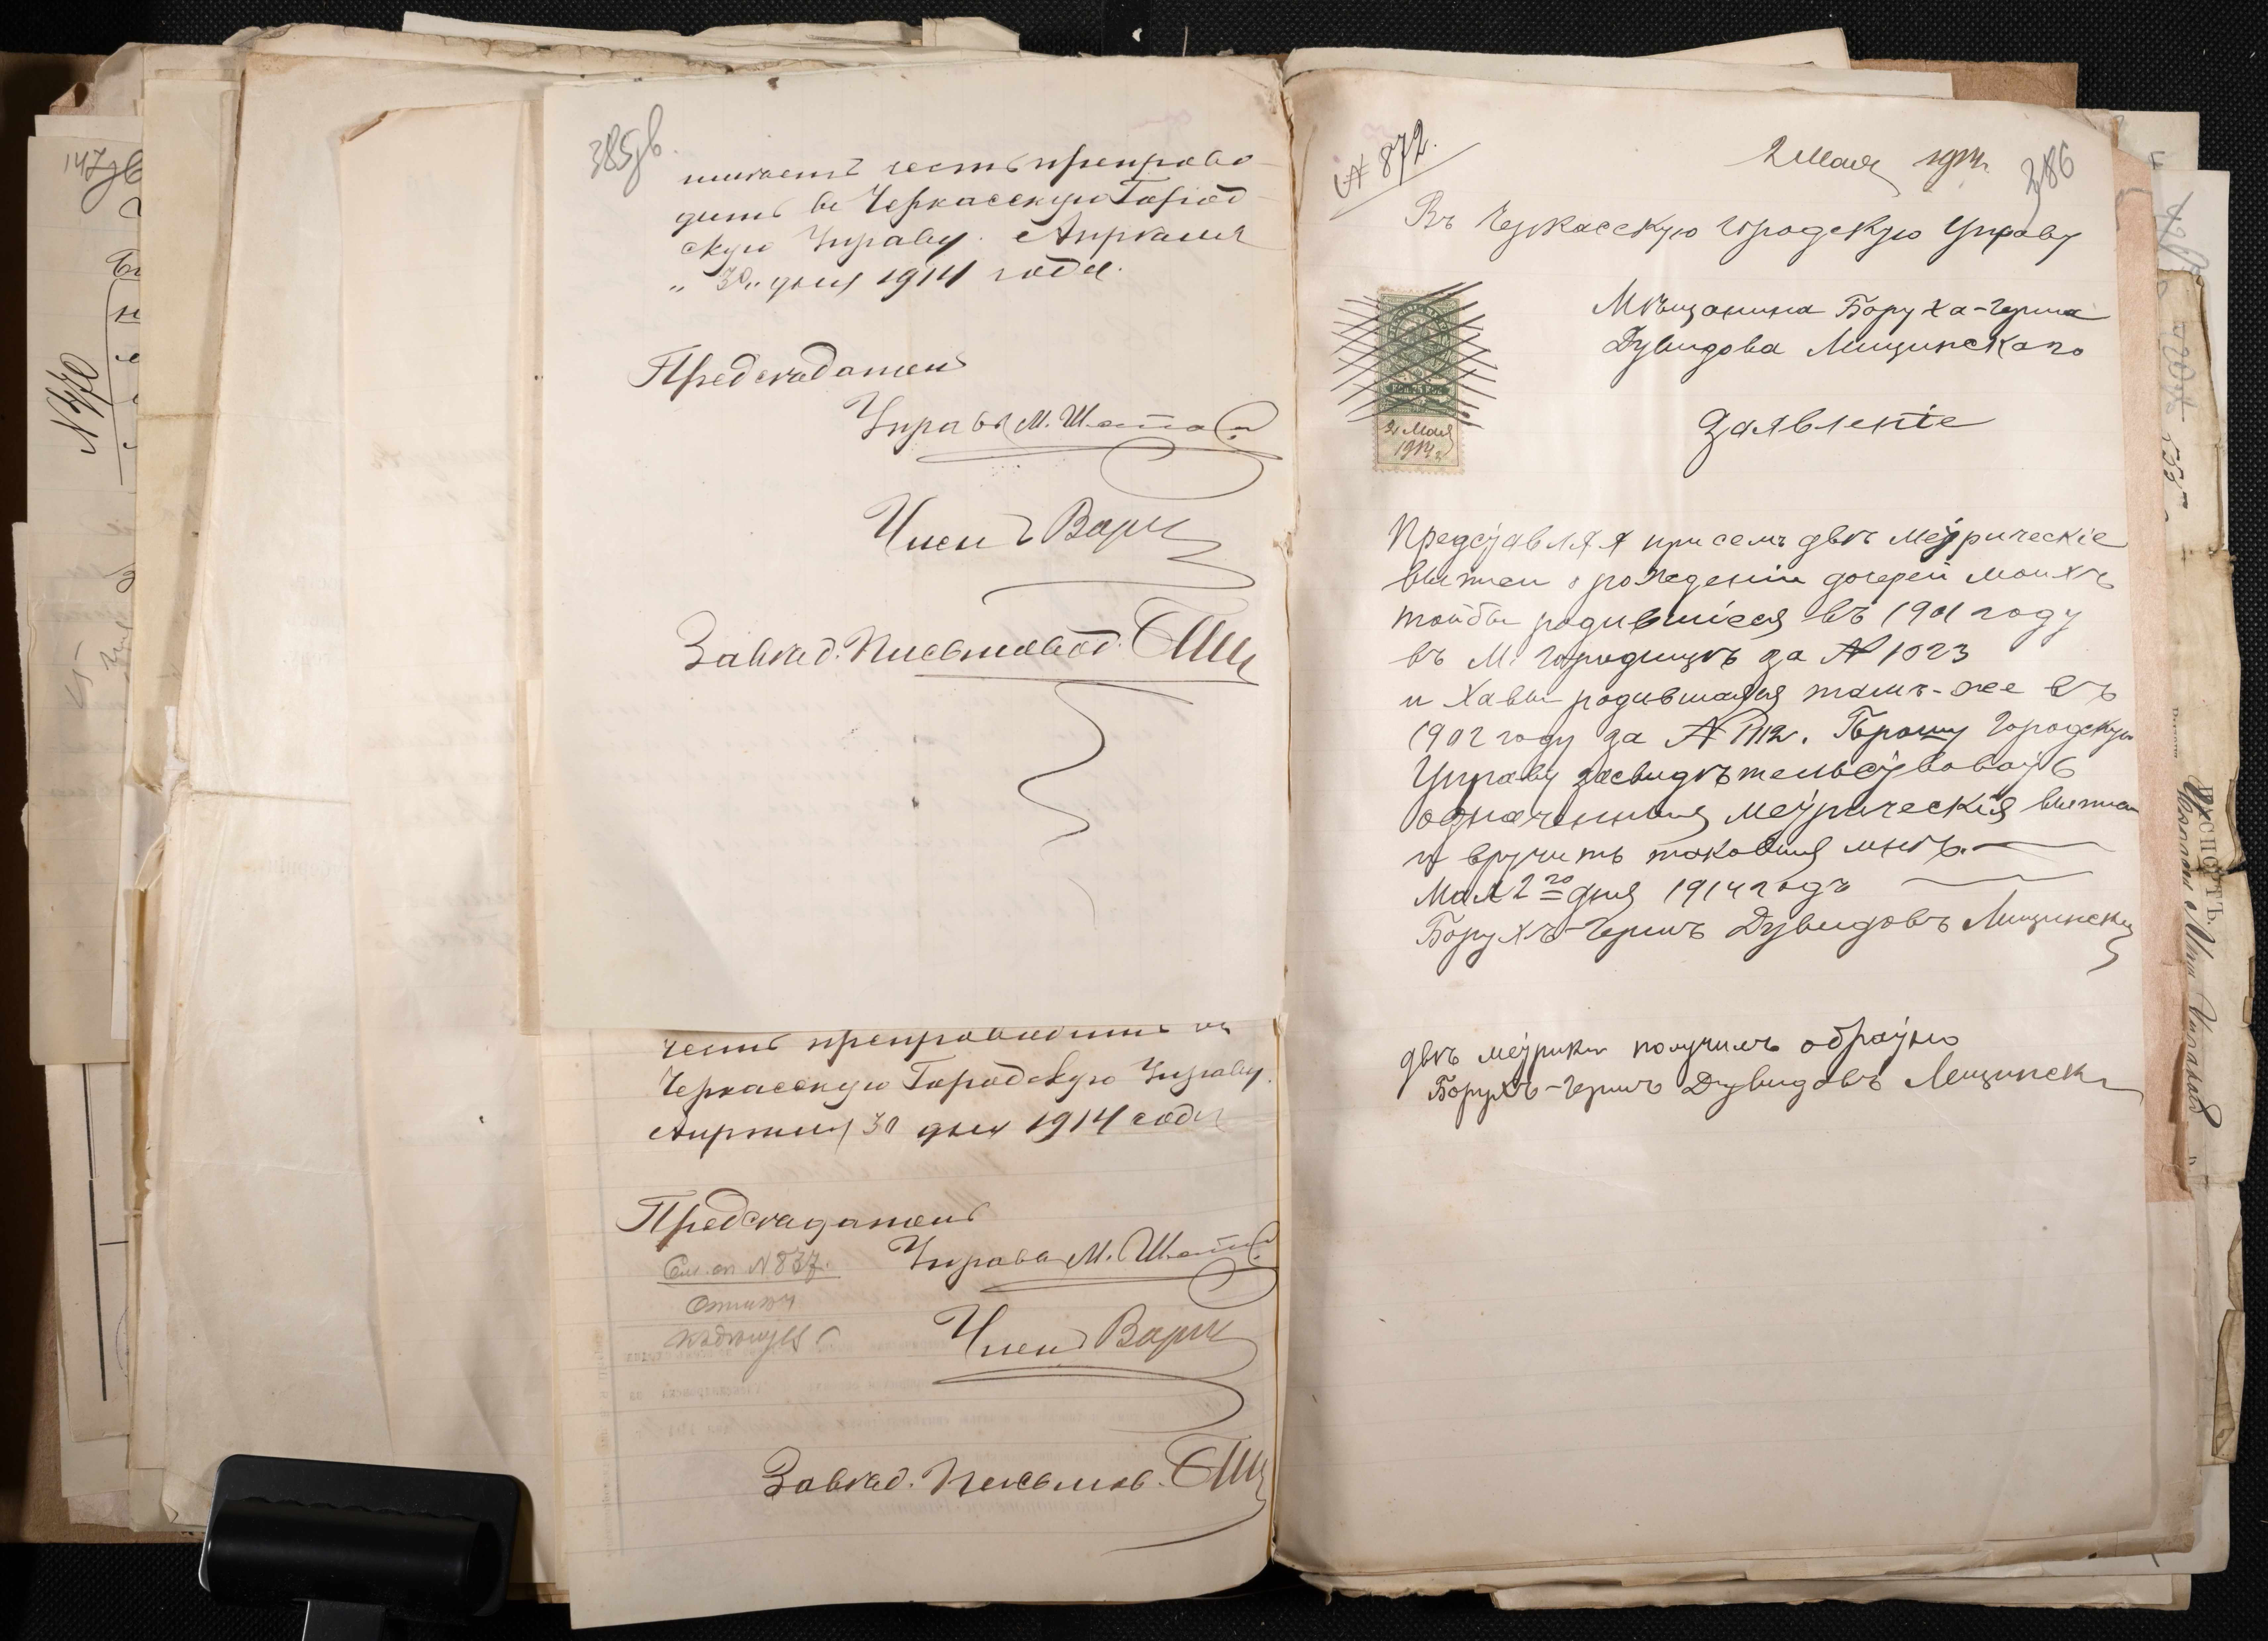 385об.
имѣетъ честь препрово-
дить въ Черкасскую Город-
скую Управу. Апрѣля
„30„ дня 1914 года.
Предсѣдатель
Управы М.
Членъ
Завѣд. Письмовод.
честь препроводить въ
Черкасскую Городскую Управу.
Апрѣля 30 дня 1914 года
Предсѣдатель
Управы М.
См. оп. № 837.
Членъ
Завѣд. Письмов.
147об
N 770
№ 872.
2 Мая 1914.
386
Въ Черкасскую Городскую Управу
Мѣщанина Боруха-Герша
Дувидова Лищинского
Заявленіе
КОП. 75 КОП.
2 Мая
1914 г.
Представляя при семъ двѣ метрическіе
выписи о рожденіи дочерей моихъ
тойбы родившіеся въ 1901 году
въ М. Городищѣ за № 1023
и Хавы родившаяся тамъ-же въ
1902 году за № 1112. Прошу Городскую
Управу засвидѣтельствовать
означенныя метрическія выписи
и вручить таковыя мнѣ.
Мая 2го дня 1914 годъ
Борухъ-Гершъ Дувидовъ Лищински
двѣ метрики получилъ обратно
Борухъ-Гершъ Дувидовъ Лищински